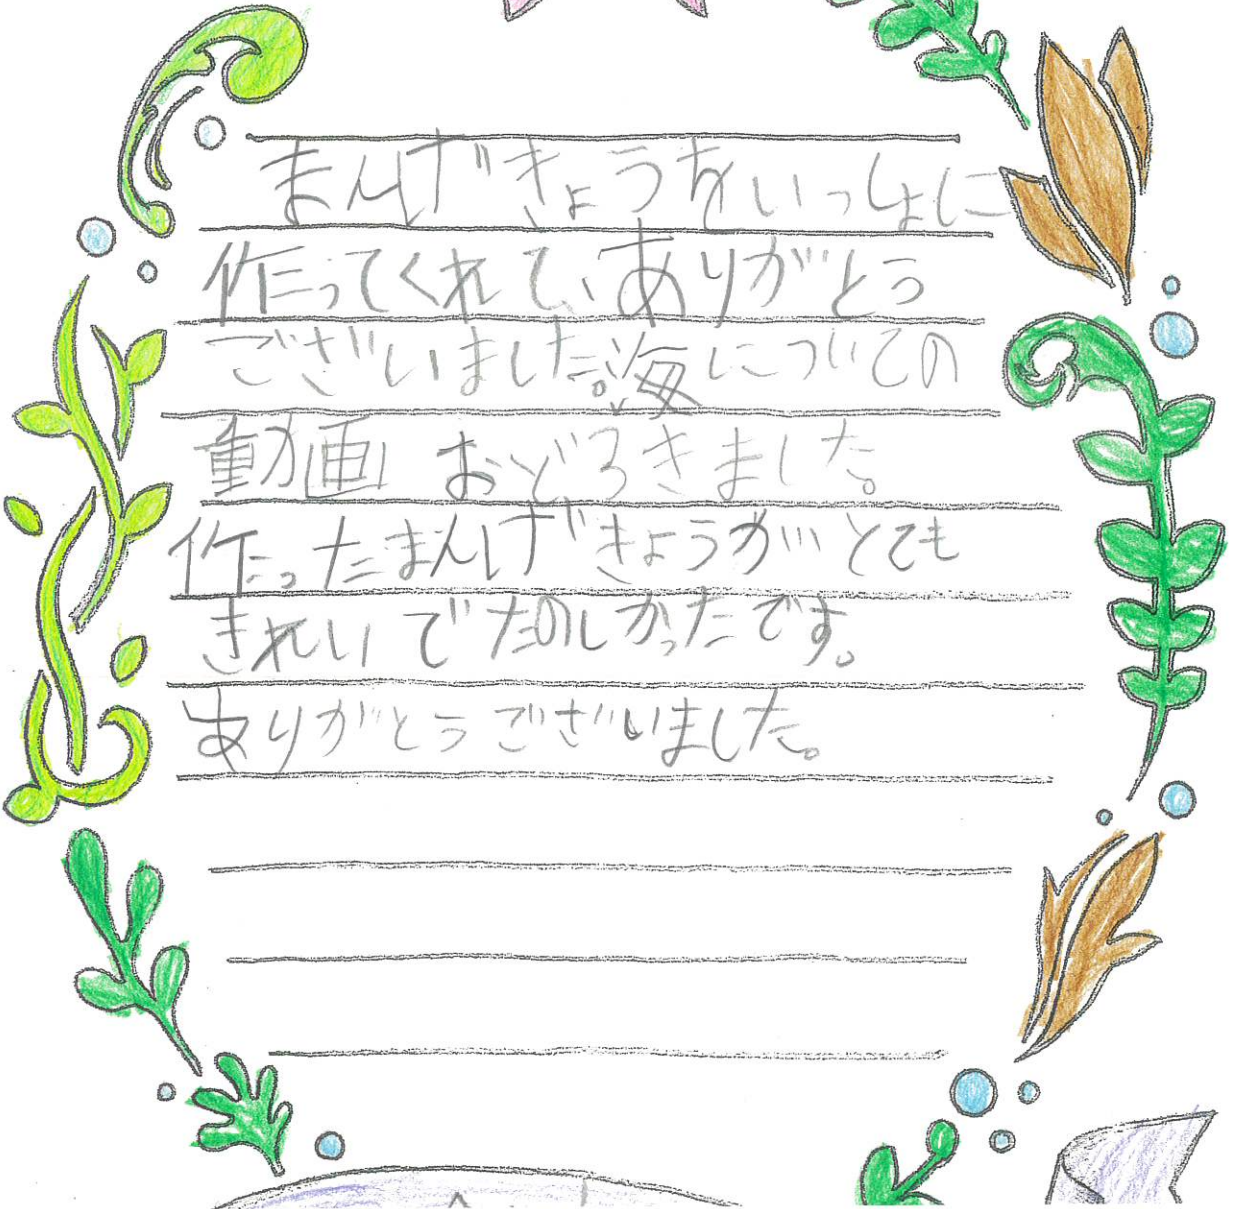 まんげきょうをいっしょに
作ってくれて、ありがとう
ございました。海についての
動画 おどろきました。
作ったまんげきょうが とても
きれいで たのしかったです。
ありがとうございました。